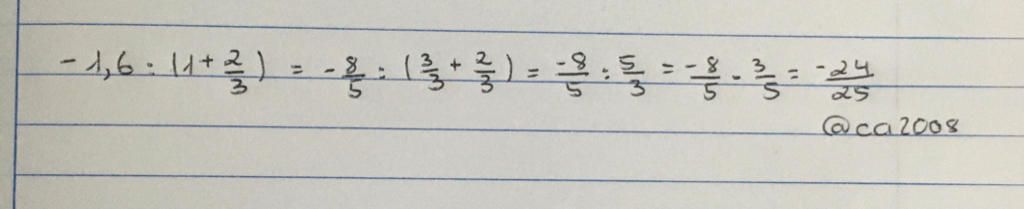 -1,6 : (1 + 2/3) = -8/5 : (3/3 + 2/3) = -8/5 : 5/3 = -8/5 · 3/5 = -24/25
@ca2008